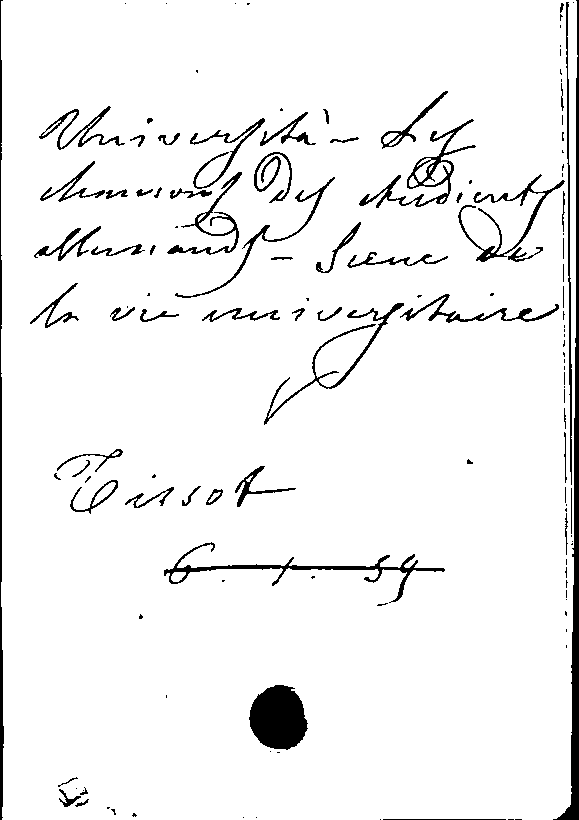 Università - Les
chansons des étudients
allemands - Scene de
la vie universitaire
Tissot
6. 1. 59